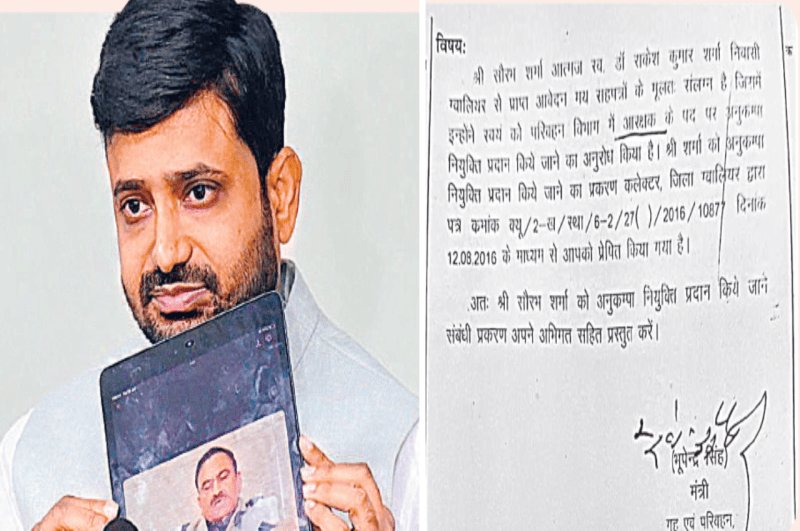 विषयः
श्री सौरभ शर्मा आत्मज स्व. डॉ राकेश कुमार शर्मा निवासी
ग्वालियर से प्राप्त आवेदन मय सहपत्रों के मूलतः संलग्न है जिसमें
इन्होने स्वयं को परिवहन विभाग में आरक्षक के पद पर अनुकम्पा
नियुक्ति प्रदान किये जाने का अनुरोध किया है। श्री शर्मा को अनुकम्पा
नियुक्ति प्रदान किये जाने का प्रकरण कलेक्टर, जिला ग्वालियर द्वारा
पत्र कमांक क्यू/2-ख/स्था/6-2/27( )/2016/1087 दिनांक
12.08.2016 के माध्यम से आपको प्रेषित किया गया है।
अतः श्री सौरभ शर्मा को अनुकम्पा नियुक्ति प्रदान किये जाने
संबंधी प्रकरण अपने अभिगत सहित प्रस्तुत करें।
(भूपेन्द्र सिंह)
मंत्री
गृह एवं परिवहन,